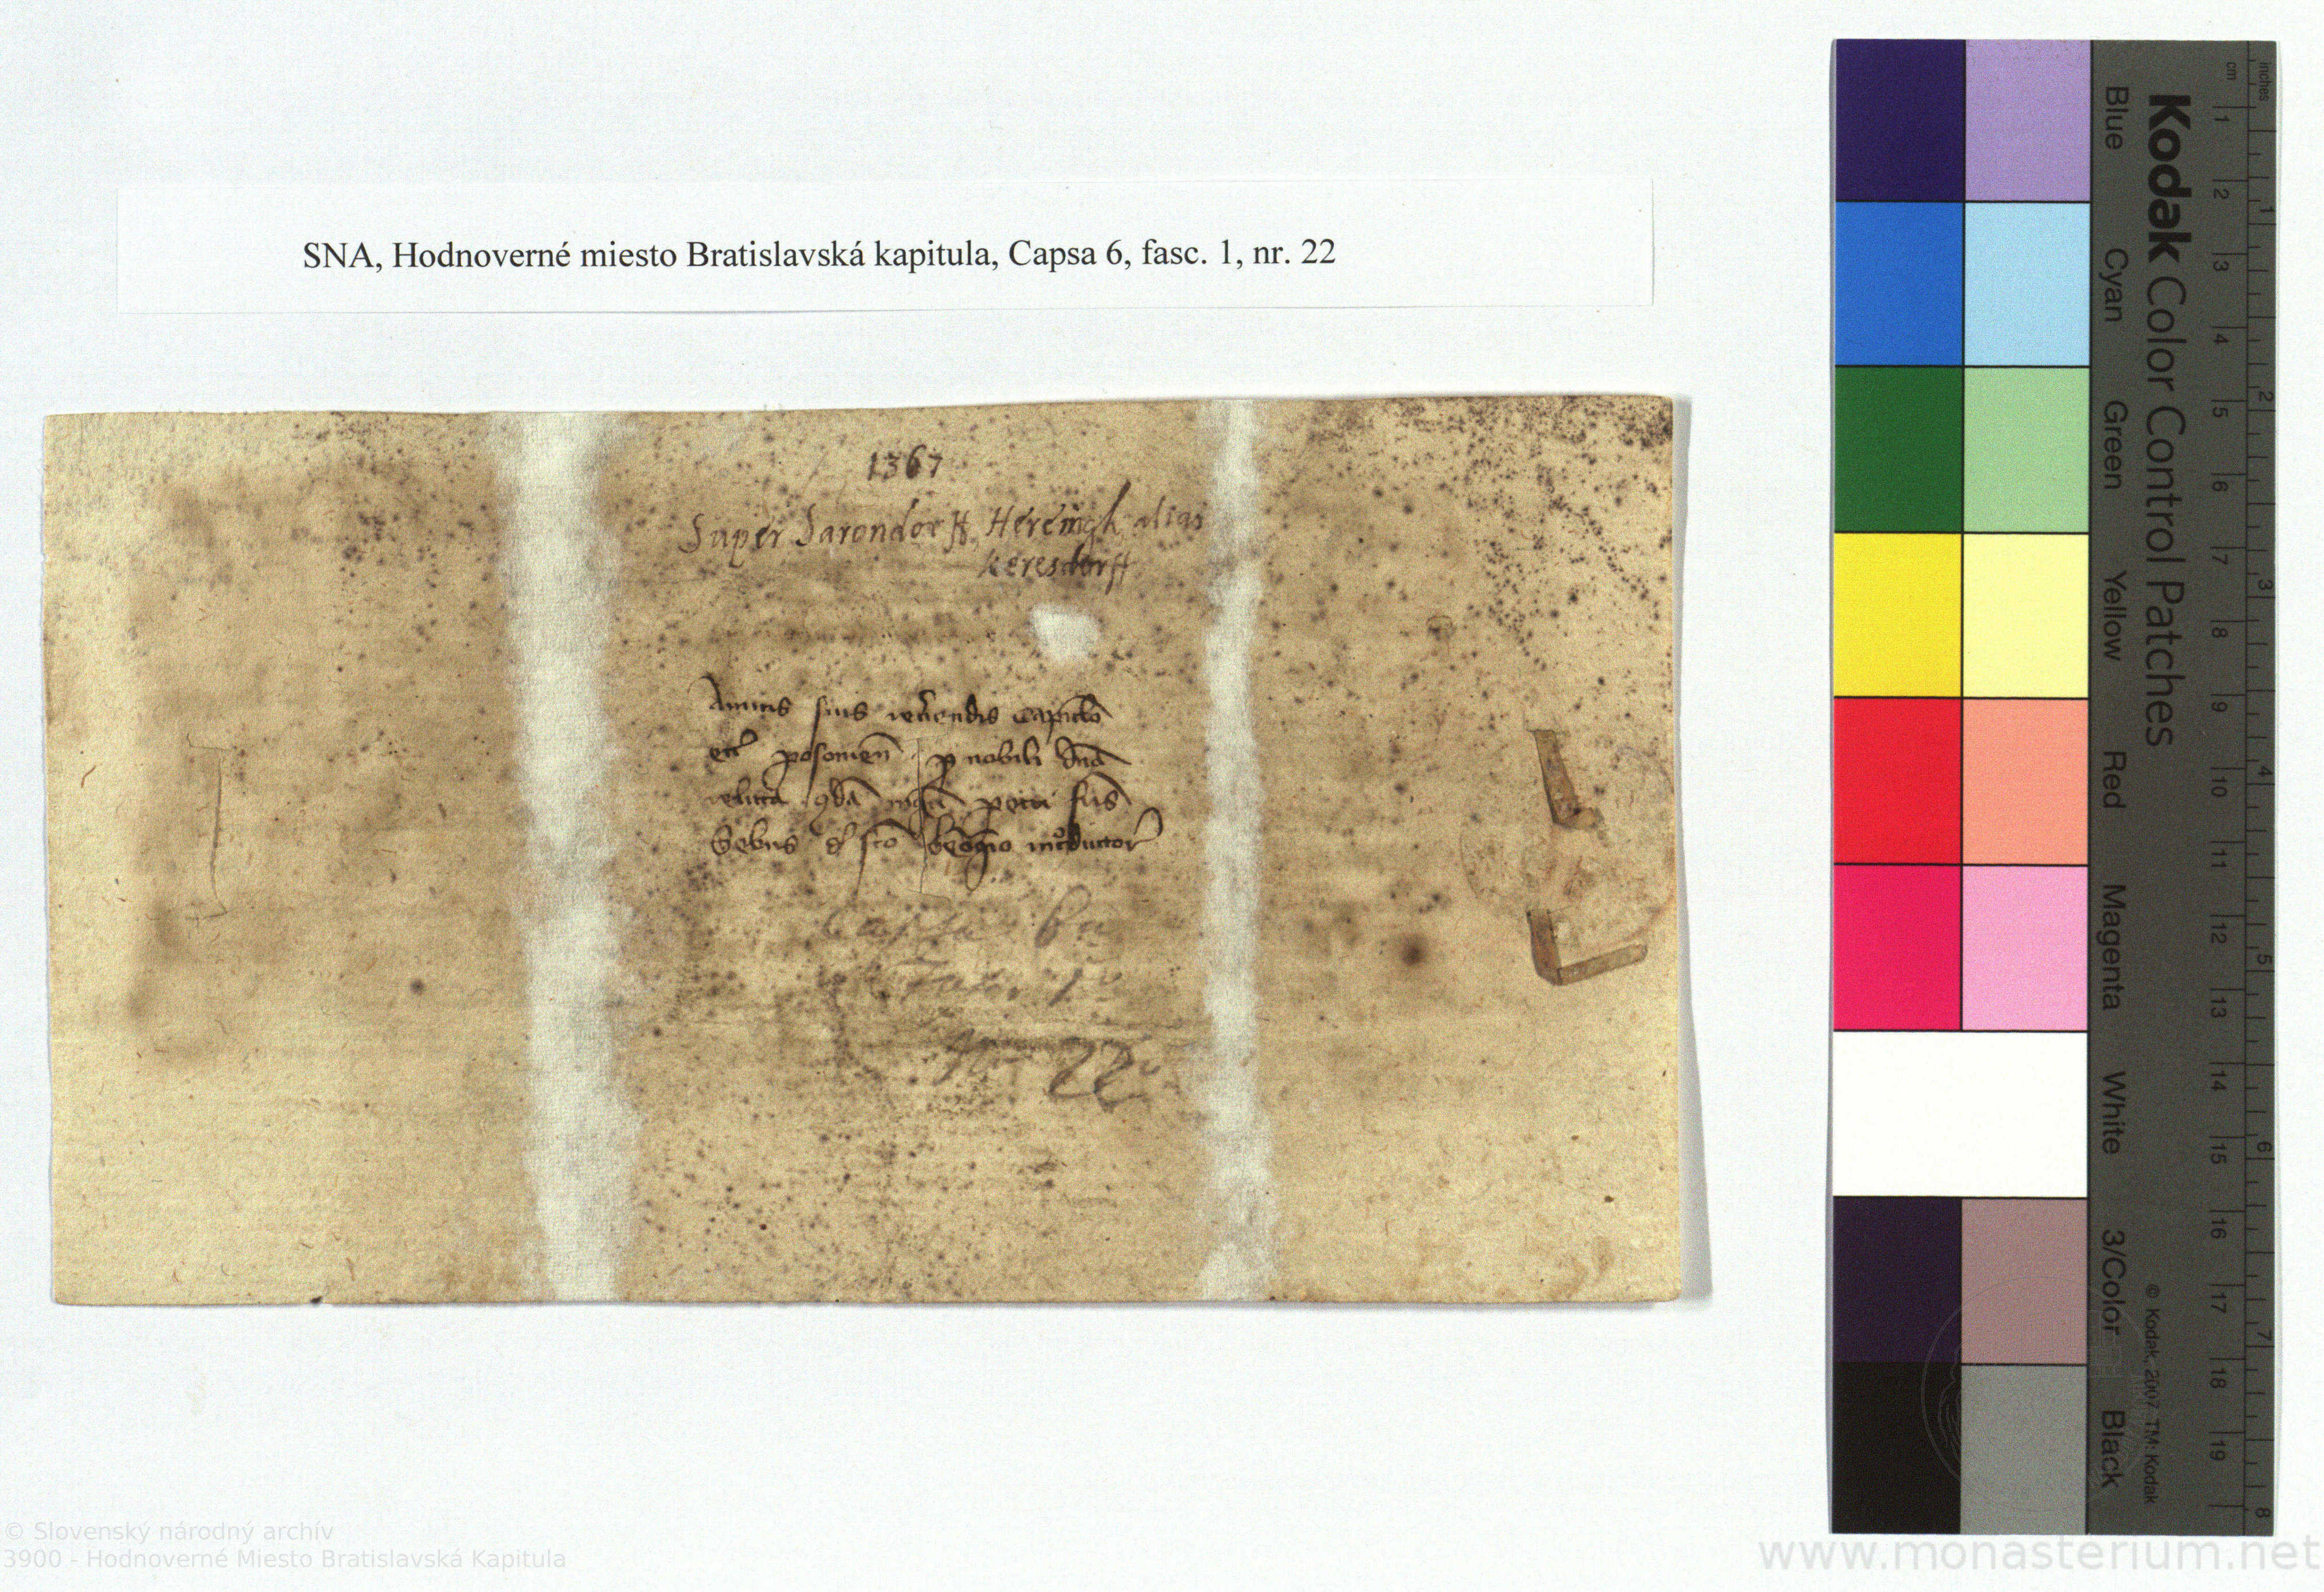 SNA, Hodnoverné miesto Bratislavská kapitula, Capsa 6, fasc. 1, nr. 22
1367
Super Sarondorff, Hereingh alias
Keresdorff
Amicis suis rev̄endis Capitl̄o
ecc̄ posonien̄ p nobili dn̄a
relicta qd̄a mgr̄i petri
de sc̄o Georgio
Capsa 6a
Fasc. 1o
Nro 22o
Kodak Color Control Patches
Blue Cyan Green Yellow Red Magenta White 3/Color Black
inches 1 2 3 4 5 6 7 8
cm 1 2 3 4 5 6 7 8 9 10 11 12 13 14 15 16 17 18 19
© Kodak, 2007 TM: Kodak
© Slovenský národný archív
3900 - Hodnoverné Miesto Bratislavská Kapitula
www.monasterium.net